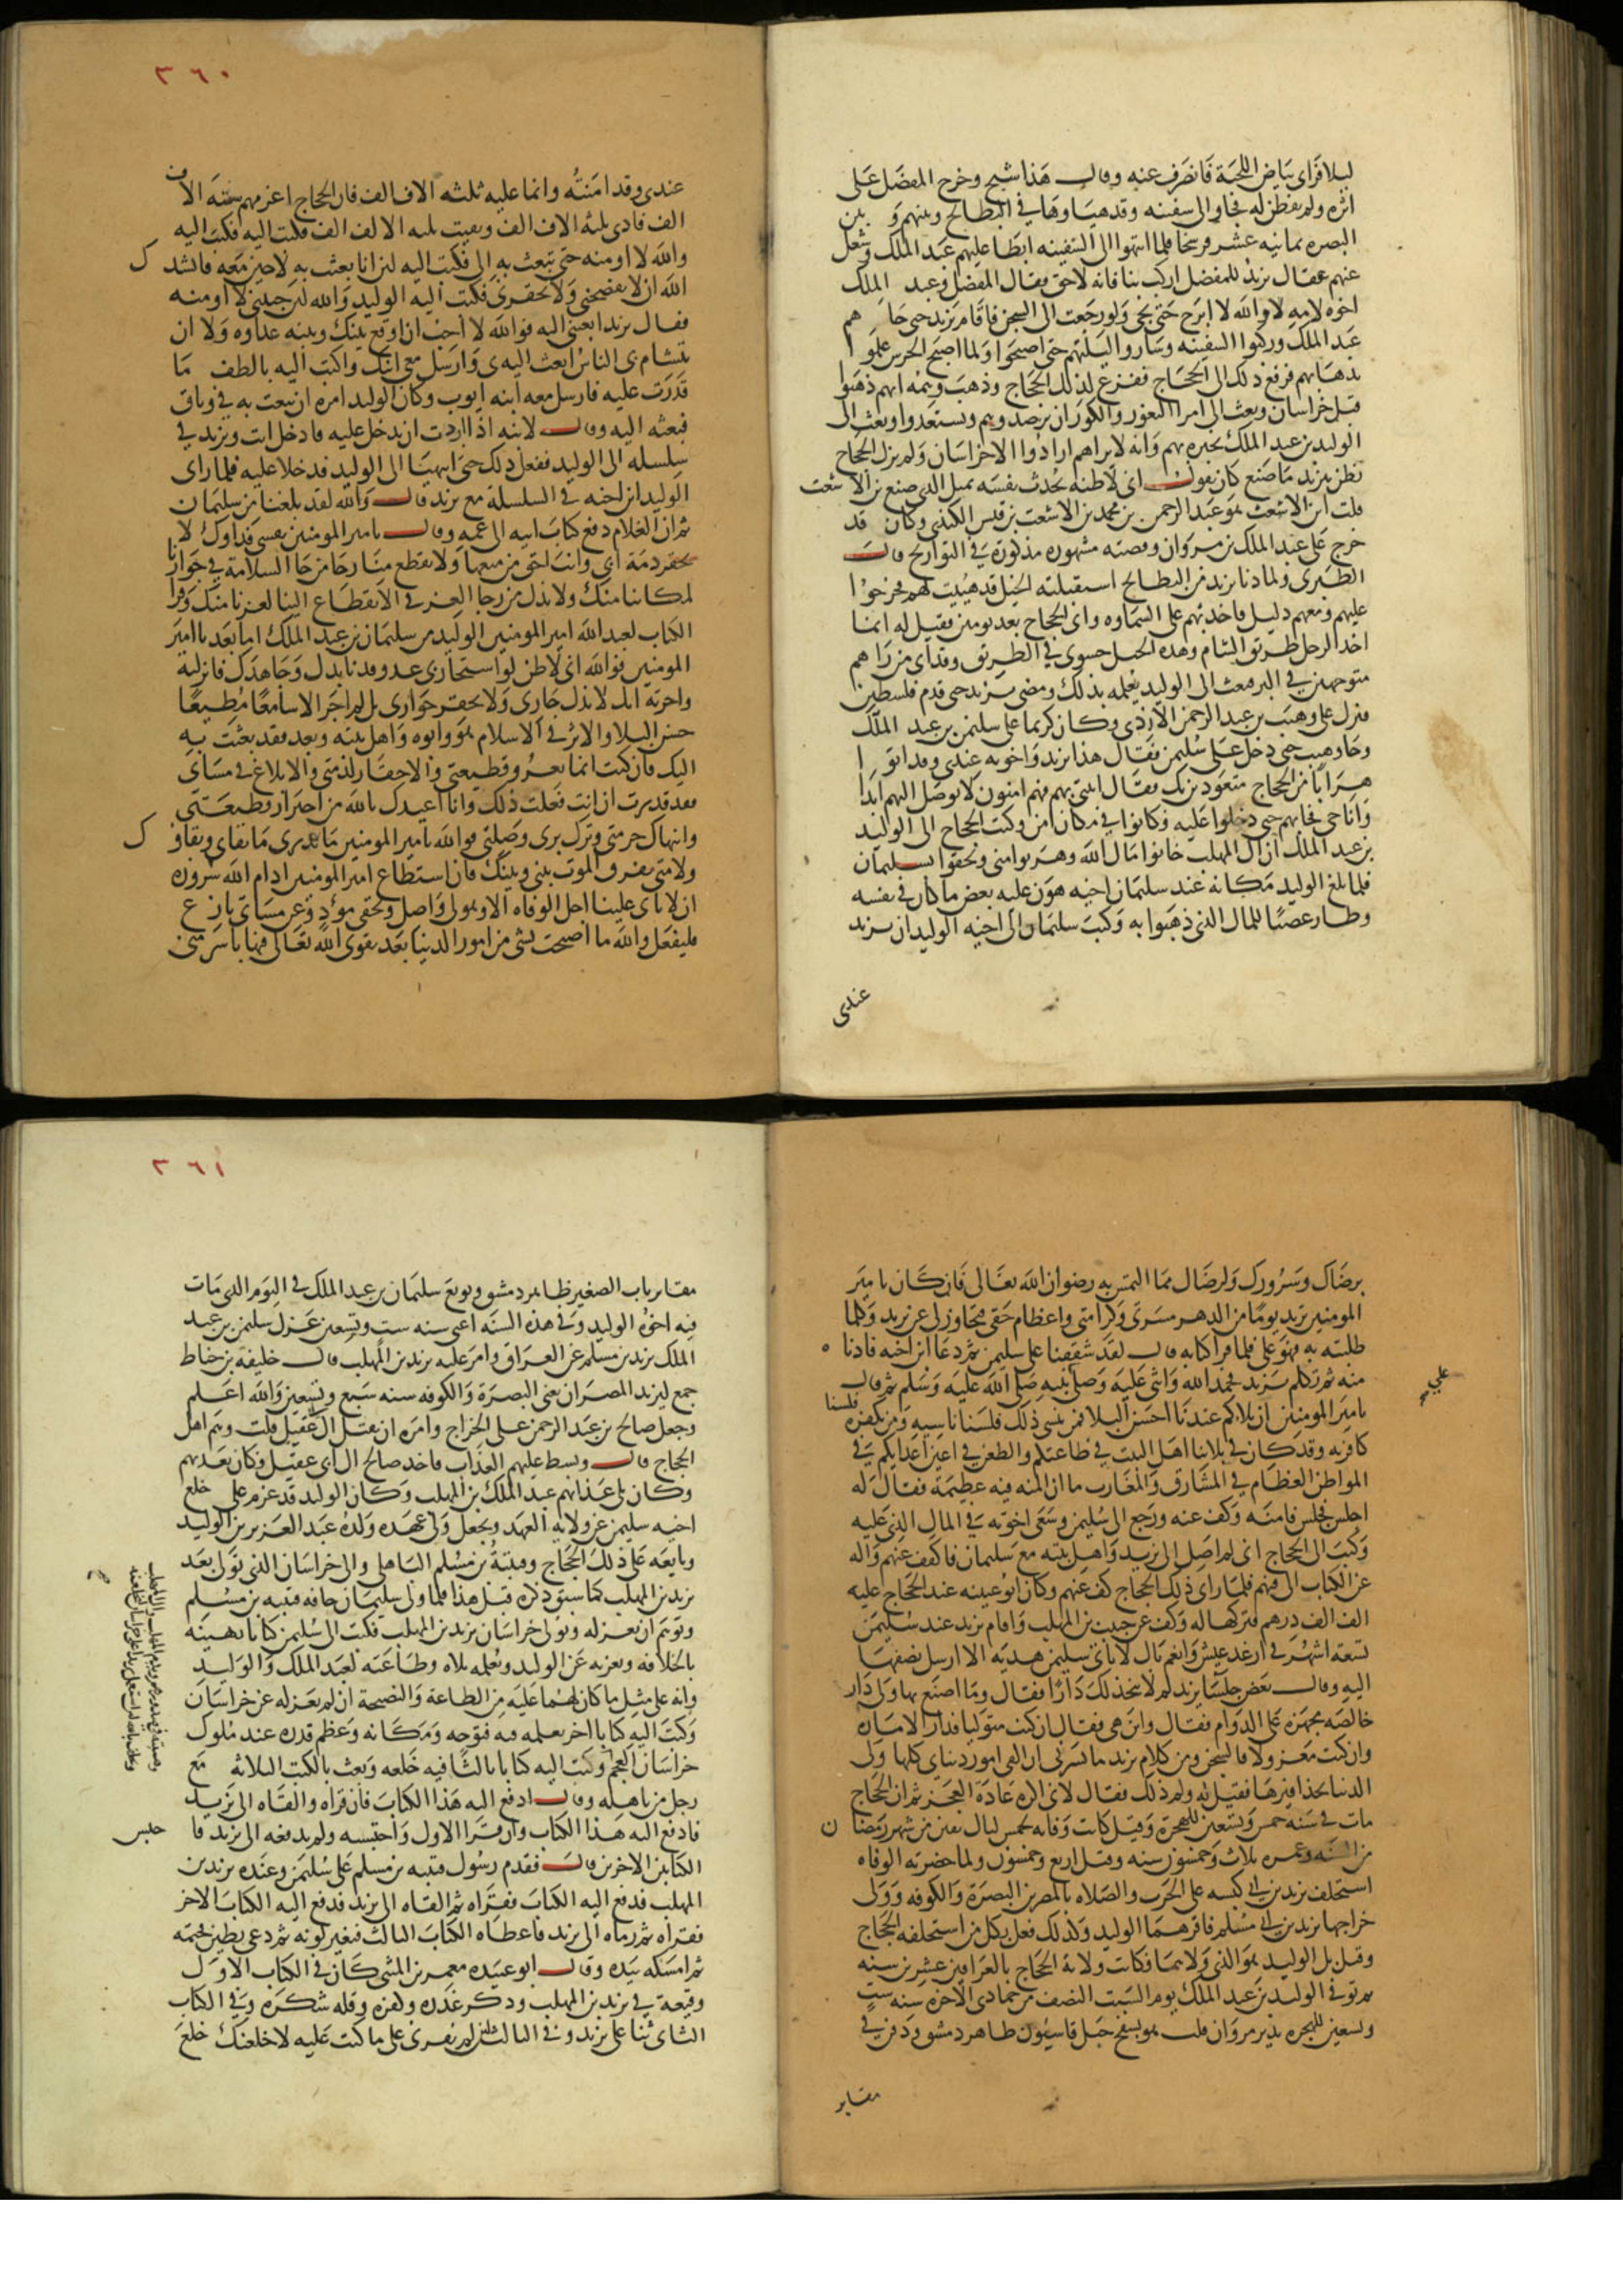 ليلا فراى بياض اللحية فانصرف عنه وقال هذا شيخ وخرج المفضل على
اثره ولم يفطن له فجاوا الى سفينه وقد هيياوها في البطايح وبينهم و بين
البصره ثمانيه عشر فرسخا فلما انتهوا الى السفينه ابطا عليهم عبد الملك وشغل
عنهم فقال يزيد للمفضل اركب بنا فانه لاحق فقال المفضل وعبد الملك
اخوه لامه لا والله لا ابرح حتى يجى ولو رجعت الى السجن فاقام يزيد حتى جا هم
عبد الملك وركبوا السفينه وساروا ليلتهم حتى اصبحوا ولما اصبح الحرس علموا
بذهابهم فرفع ذلك الى الحجاج ففزع لذلك الحجاج وذهب وهمه انهم ذهبوا
قبل خراسان وبعث الى امرا الثغور والكور ان يرصدوهم ويستعدوا وبعث الى
الوليد بن عبد الملك يخبره بهم وانه لا يراهم ارادوا الا خراسان ولم يزل الحجاج
يظن بيزيد ما صنع كان يقول انى لاظنه يحدث نفسه بمثل الذي صنع بن الاشعث
قلت ابن الاشعث هو عبد الرحمن بن محمد بن الاشعث بن قيس الكندي وكان قد
خرج على عبد الملك بن مروان وقصته مشهوره مذكورة في التواريخ قال
الطبرى ولما دنا يزيد من البطايح استقبلته الخيل قد هييت لهم فخرجوا
عليهم ومعهم دليل فاخذ بهم على السماوه واتى الحجاج بعد يومين فقيل له انما
اخذ الرجل طريق الشام وهذه الخيل حسرى في الطريق وقد اى من راهم
متوجهين في البر فبعث الى الوليد يعلمه بذلك ومضى يزيد حتى قدم فلسطين
فنزل على وهيب بن عبد الرحمن الازدى وكان كريما على سليمن بن عبد الملك
وجا وهيب حتى دخل على سليمن فقال هذا يزيد واخوته عندى وقد اتوا
هرابا من الحجاج متعوذين بك فقال ايتني بهم فهم امنون لا يوصل اليهم ابدا
وانا حى فجا بهم حتى دخلوا عليه وكانوا في مكان امن وكتب الحجاج الى الوليد
بن عبد الملك ان ال المهلب خانوا مال الله وهربوا مني ولحقوا بسليمان
فلما بلغ الوليد مكانه عند سليمان اخيه هون عليه بعض ما كان في نفسه
وطار غضبا للمال الذي ذهبوا به وكتب سليمان الى اخيه الوليد ان يزيد
عندى
٣٦٠
عندى وقد امنته وانما عليه ثلثه الاف الف فان الحجاج اغرمهم سته الاف
الف فادى ثلثه الاف الف وبقيت ثلثه الاف الف فكتب اليه فكتب اليه
والله لا اومنه حتى تبعث به الى فكتب اليه لين انا بعثت به لاجين معه فانشدك
الله ان لا تفضحنى ولا تخفرنى فكتب اليه الوليد والله لين جيتني لا اومنه
فقال يزيد ابعثني اليه فوالله لا احب ان اوقع بينك وبينه عداوه ولا ان
يتشام بي الناس ابعث اليه بى وارسل معى ابنك واكتب اليه بالطف ما
قدرت عليه فارسل معه ابنه ايوب وكان الوليد امره ان يبعث به في وثاق
فبعثه اليه وقال لابنه اذا اردت ان تدخل عليه فادخل انت ويزيد في
سلسله الى الوليد ففعل ذلك حتى انتهيا الى الوليد فدخلا عليه فلما راى
الوليد ابن اخيه في السلسلة مع يزيد قال والله لقد بلغنا من سليمان
ثم ان الغلام دفع كتاب ابيه الى عمه وقال يامير المومنين نفسي فداوك لا
تخفر ذمة ابي وانت احق من منعها ولا تقطع منا رجا من رجا السلامة في جوارنا
لمكاننا منك ولا تذل من رجا العز في الانقطاع الينا لعزنا منك وقرا
الكتاب لعبد الله امير المومنين الوليد من سليمان بن عبد الملك اما بعد يا امير
المومنين فوالله اني لاظن لو استجارنى عدو قد نابذك وجاهدك فانزلته
واجرته انك لا تذل جارى ولا تخفر جوارى بل لم اجر الا سامعا مطيعا
حسن البلا والاثر في الاسلام هو وابوه واهل بيته وبعد فقد بعثت به
اليك فان كنت انما تعرو قطيعتى والاخفار لذمتى والابلاغ في مساتى
فقد قدرت ان انت فعلت ذلك وانا اعيذك بالله من احترار قطيعتى
وانتهاك حرمتى وترك برى وصلتى فوالله يامير المومنين ما تدرى ما بقاى وبقاوك
ولا متى يفرق الموت بيني وبينك فان استطاع امير المومنين ادام الله سروره
ان لا ياتى علينا اجل الوفاه الا وهو لى واصل ولحقى مؤد وعن مساتى نازع
فليفعل والله ما اصبحت بشى من امور الدنيا بعد تقوى الله تعالى فيها باسر منى
برضاك وسرورك ولرضاك مما التمس به رضوان الله تعالى فان كان يامير
المومنين تريد يوما من الدهر مسرتى وكرامتى واعظام حقى فتجاوز لى عن يزيد وكلما
طلبته به فهو على فلما قرا كتابه قال لقد شققنا على سليمن ثم دعا ابن اخيه فادناه
منه ثم تكلم يزيد فحمد الله واثنى عليه وصلى على نبيه صلى الله عليه وسلم ثم قال
يامير المومنين ان بلاكم عندنا احسن البلا فمن ينسى ذلك فلسنا ناسيه ومن يكفره فلسنا
كافريه وقد كان في بلاينا اهل البيت في طاعتكم والطعن في اعين اعدايكم في
المواطن العظام في المشارق والمغارب ما ان المنه فيه عظيمة فقال له
اجلس فجلس فامنه وكف عنه ورجع الى سليمن وسعى اخوته في المال الذي عليه
وكتب الى الحجاج اني لم اصل الى يزيد واهل بيته مع سليمان فاكفف عنهم واله
عن الكتاب الى فيهم فلما راى ذلك الحجاج كف عنهم وكان ابو عيينه عند الحجاج عليه
الف الف درهم فتركها له وكف عن حبيب بن المهلب واقام يزيد عند سليمن
تسعة اشهر في ارغد عيش وانعم بال لا ياتى سليمن هديه الا ارسل نصفها
اليه وقال بعض جلسا يزيد له لم لا تتخذ لك دارا فقال وما اصنع بها ولى دار
خالصه مجهزه على الدوام فقال واين هي فقال ان كنت متوليا فدار الاماره
وان كنت معزولا فالسجن ومن كلام يزيد ما يسرنى ان اكفى امور دنياى كلها ولى
الدنيا بحذافيرها فقيل له ولم ذلك فقال لانى اكره عادة العجز ثم ان الحجاج
مات في سنه خمس وتسعين للهجرة وقيل كانت وفاته لخمس ليال بقين من شهر رمضان
من السنه وعمره ثلاث وخمسون سنه وقيل اربع وخمسون ولما حضرته الوفاه
استخلف يزيد بن ابى كبشه على الحرب والصلاه بالمصرين البصرة والكوفه وولى
خراجها يزيد بن ابى مسلم فاقرهما الوليد وكذلك فعل بكل من استخلفه الحجاج
وقيل بل الوليد هو الذي ولاهما فكانت ولاية الحجاج بالعراقين عشرين سنه
ثم توفى الوليد بن عبد الملك يوم السبت النصف من جمادى الاخره سنه ست
وتسعين للهجره بدير مروان قلت هو بسفح جبل قاسيون ظاهر دمشق ودفن في
مقابر
على
٣٦١
مقابر باب الصغير ظاهر دمشق وبويع سليمان بن عبد الملك في اليوم الذي مات
فيه اخوه الوليد وفي هذه السنه اعنى سنه ست وتسعين عزل سليمن بن عبد
الملك يزيد بن مسلم عن العراق وامر عليه يزيد بن المهلب قال خليفه بن خياط
جمع ليزيد المصران يعنى البصرة والكوفه سنه سبع وتسعين والله اعلم
وجعل صالح بن عبد الرحمن على الخراج وامره ان يقتل ال عقيل قلت وهم اهل
الحجاج قال وبسط عليهم العذاب فاخذ صالح ال ابى عقيل فكان يعذبهم
وكان يلى عذابهم عبد الملك بن المهلب وكان الوليد قد عزم على خلع
اخيه سليمن عن ولايه العهد ويجعل ولى عهده ولده عبد العزيز بن الوليد
وبايعه على ذلك الحجاج وقتيبة بن مسلم الباهلى والى خراسان الذي تولى بعد
يزيد بن المهلب كما سبق ذكره قبل هذا فلما ولى سليمان خافه قتيبه بن مسلم
وتوهم ان يعزله ويولى خراسان يزيد بن المهلب فكتب الى سليمن كتابا يهنيه
بالخلافه ويعزيه عن الوليد ويعلمه بلاه وطاعته لعبد الملك والوليد
وانه على مثل ما كان لهما عليه من الطاعة والنصيحة ان لم يعزله عن خراسان
وكتب اليه كتابا اخر يعلمه فيه فتوحه ومكانه وعظم قدره عند ملوك
خراسان العجم وكتب اليه كتابا ثالثا فيه خلعه وبعث بالكتب الثلاثه مع
رجل من باهله وقال ادفع اليه هذا الكتاب فان قراه والقاه الى يزيد
فادفع اليه هذا الكتاب وان قرا الاول واحتبسه ولم يدفعه الى يزيد فاحبس
الكتابين الاخرين قال فقدم رسول قتيبه بن مسلم على سليمن وعنده يزيد بن
المهلب فدفع اليه الكتاب فقراه ثم القاه الى يزيد فدفع اليه الكتاب الاخر
فقراه ثم رماه الى يزيد فاعطاه الكتاب الثالث فتغير لونه ثم دعى بطين فختمه
ثم امسكه بيده وقال ابو عبيده معمر بن المثنى كان في الكتاب الاول
وقيعة في يزيد بن المهلب وذكر غدره وكفره وقله شكره وفي الكتاب
الثانى ثنا على يزيد وفي الثالث لين لم تقرنى على ما كنت عليه لاخلعنك خلع